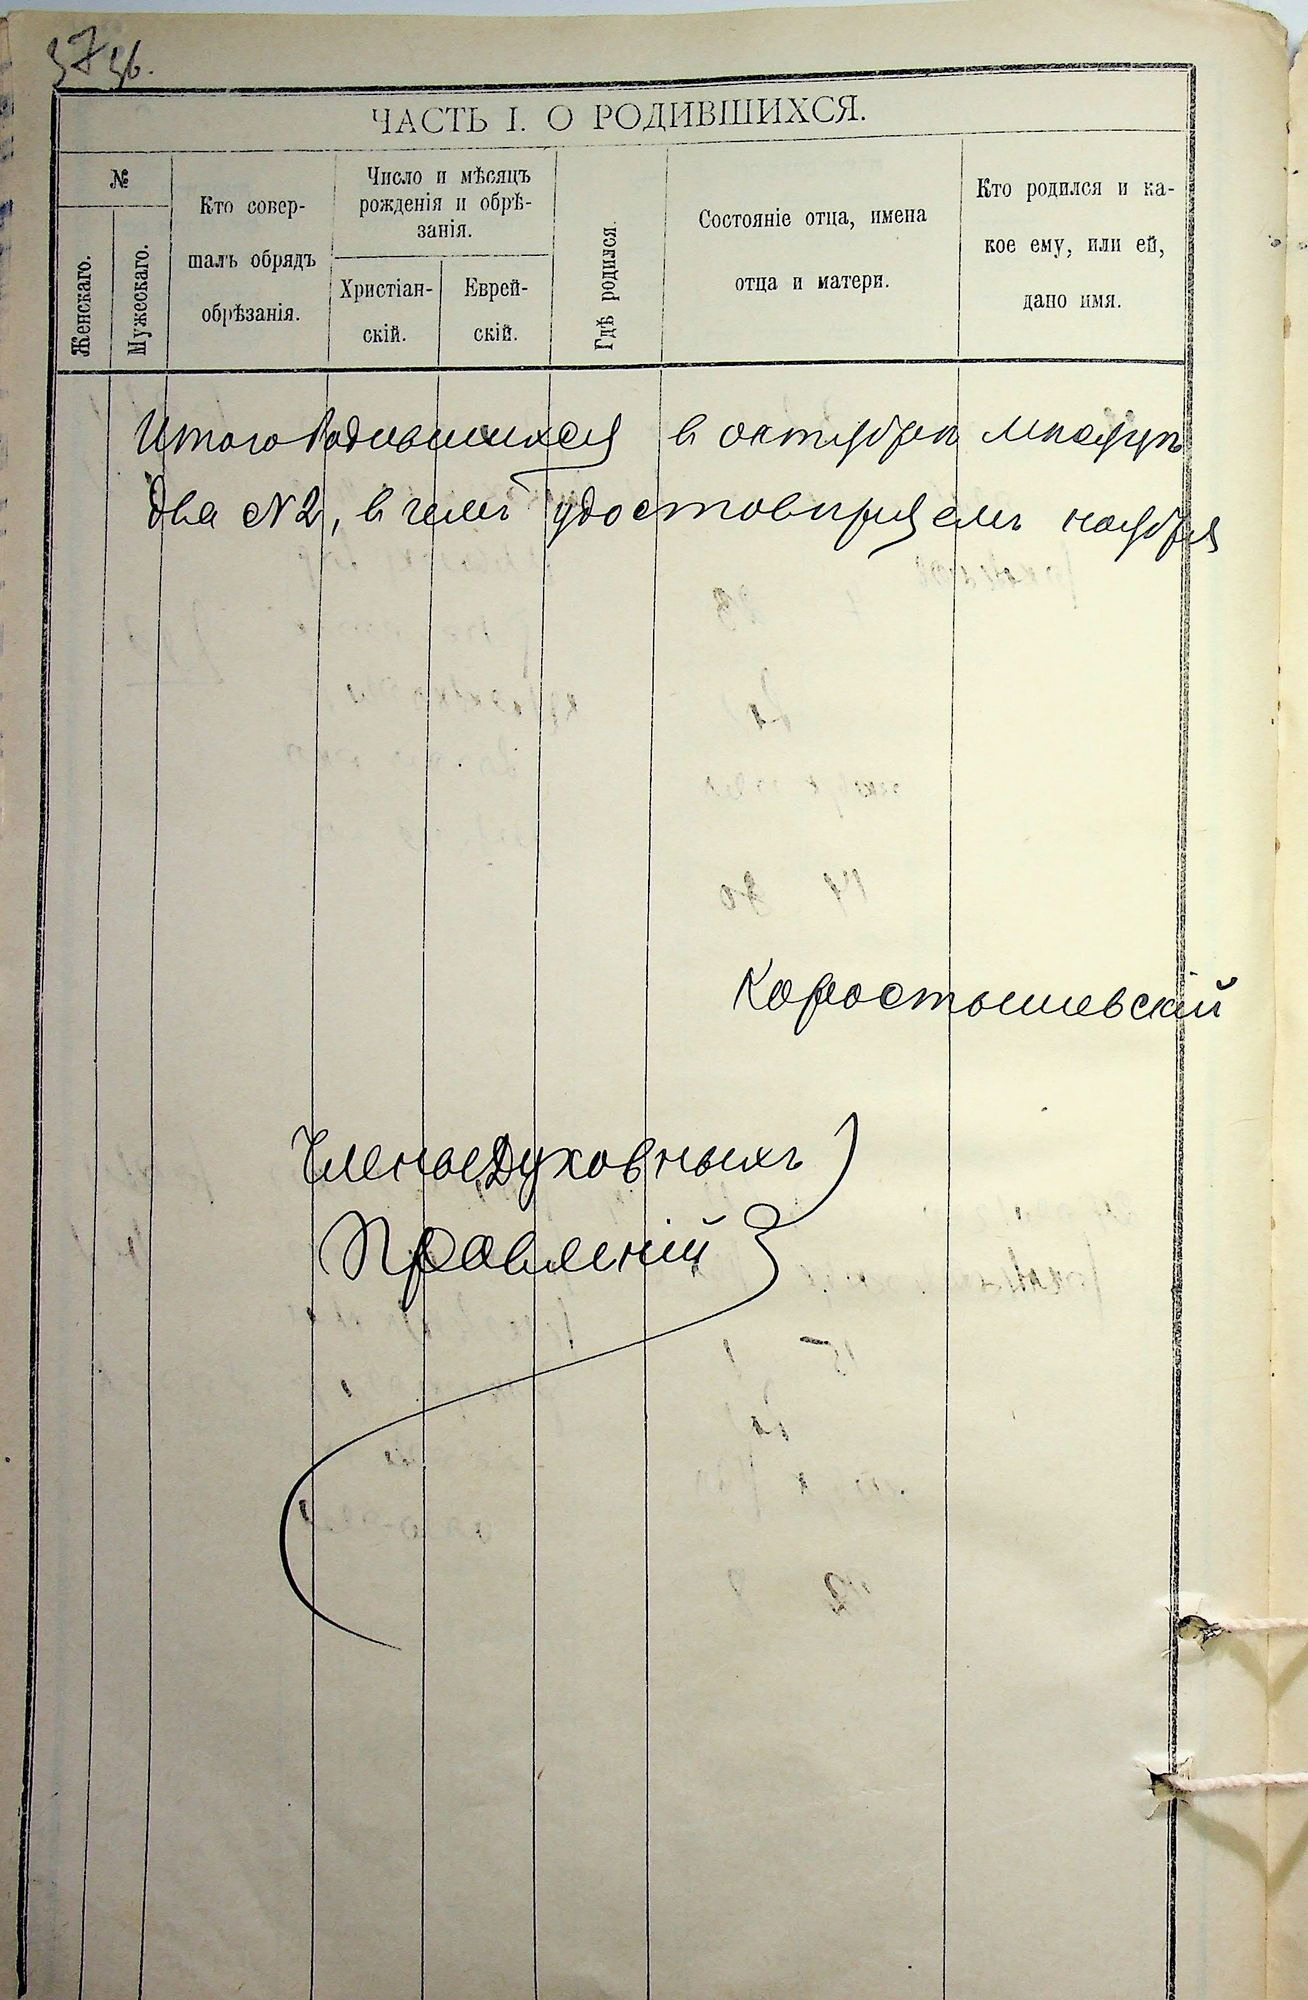 37 36.
ЧАСТЬ I. О РОДИВШИХСЯ.
№
Женскаго.
Мужескаго.
Кто совер-
шалъ обрядъ
обрѣзанія.
Число и мѣсяцъ
рожденія и обрѣ-
занія.
Христіан-
скій.
Еврей-
скій.
Гдѣ родился.
Состояніе отца, имена
отца и матери.
Кто родился и ка-
кое ему, или ей,
дано имя.
Итого Родившихся в октябрѣ мѣсяцѣ
два №2, в чемъ удостовѣряемъ ноября
Коростышевскій
Члены Духовныхъ
Правленій